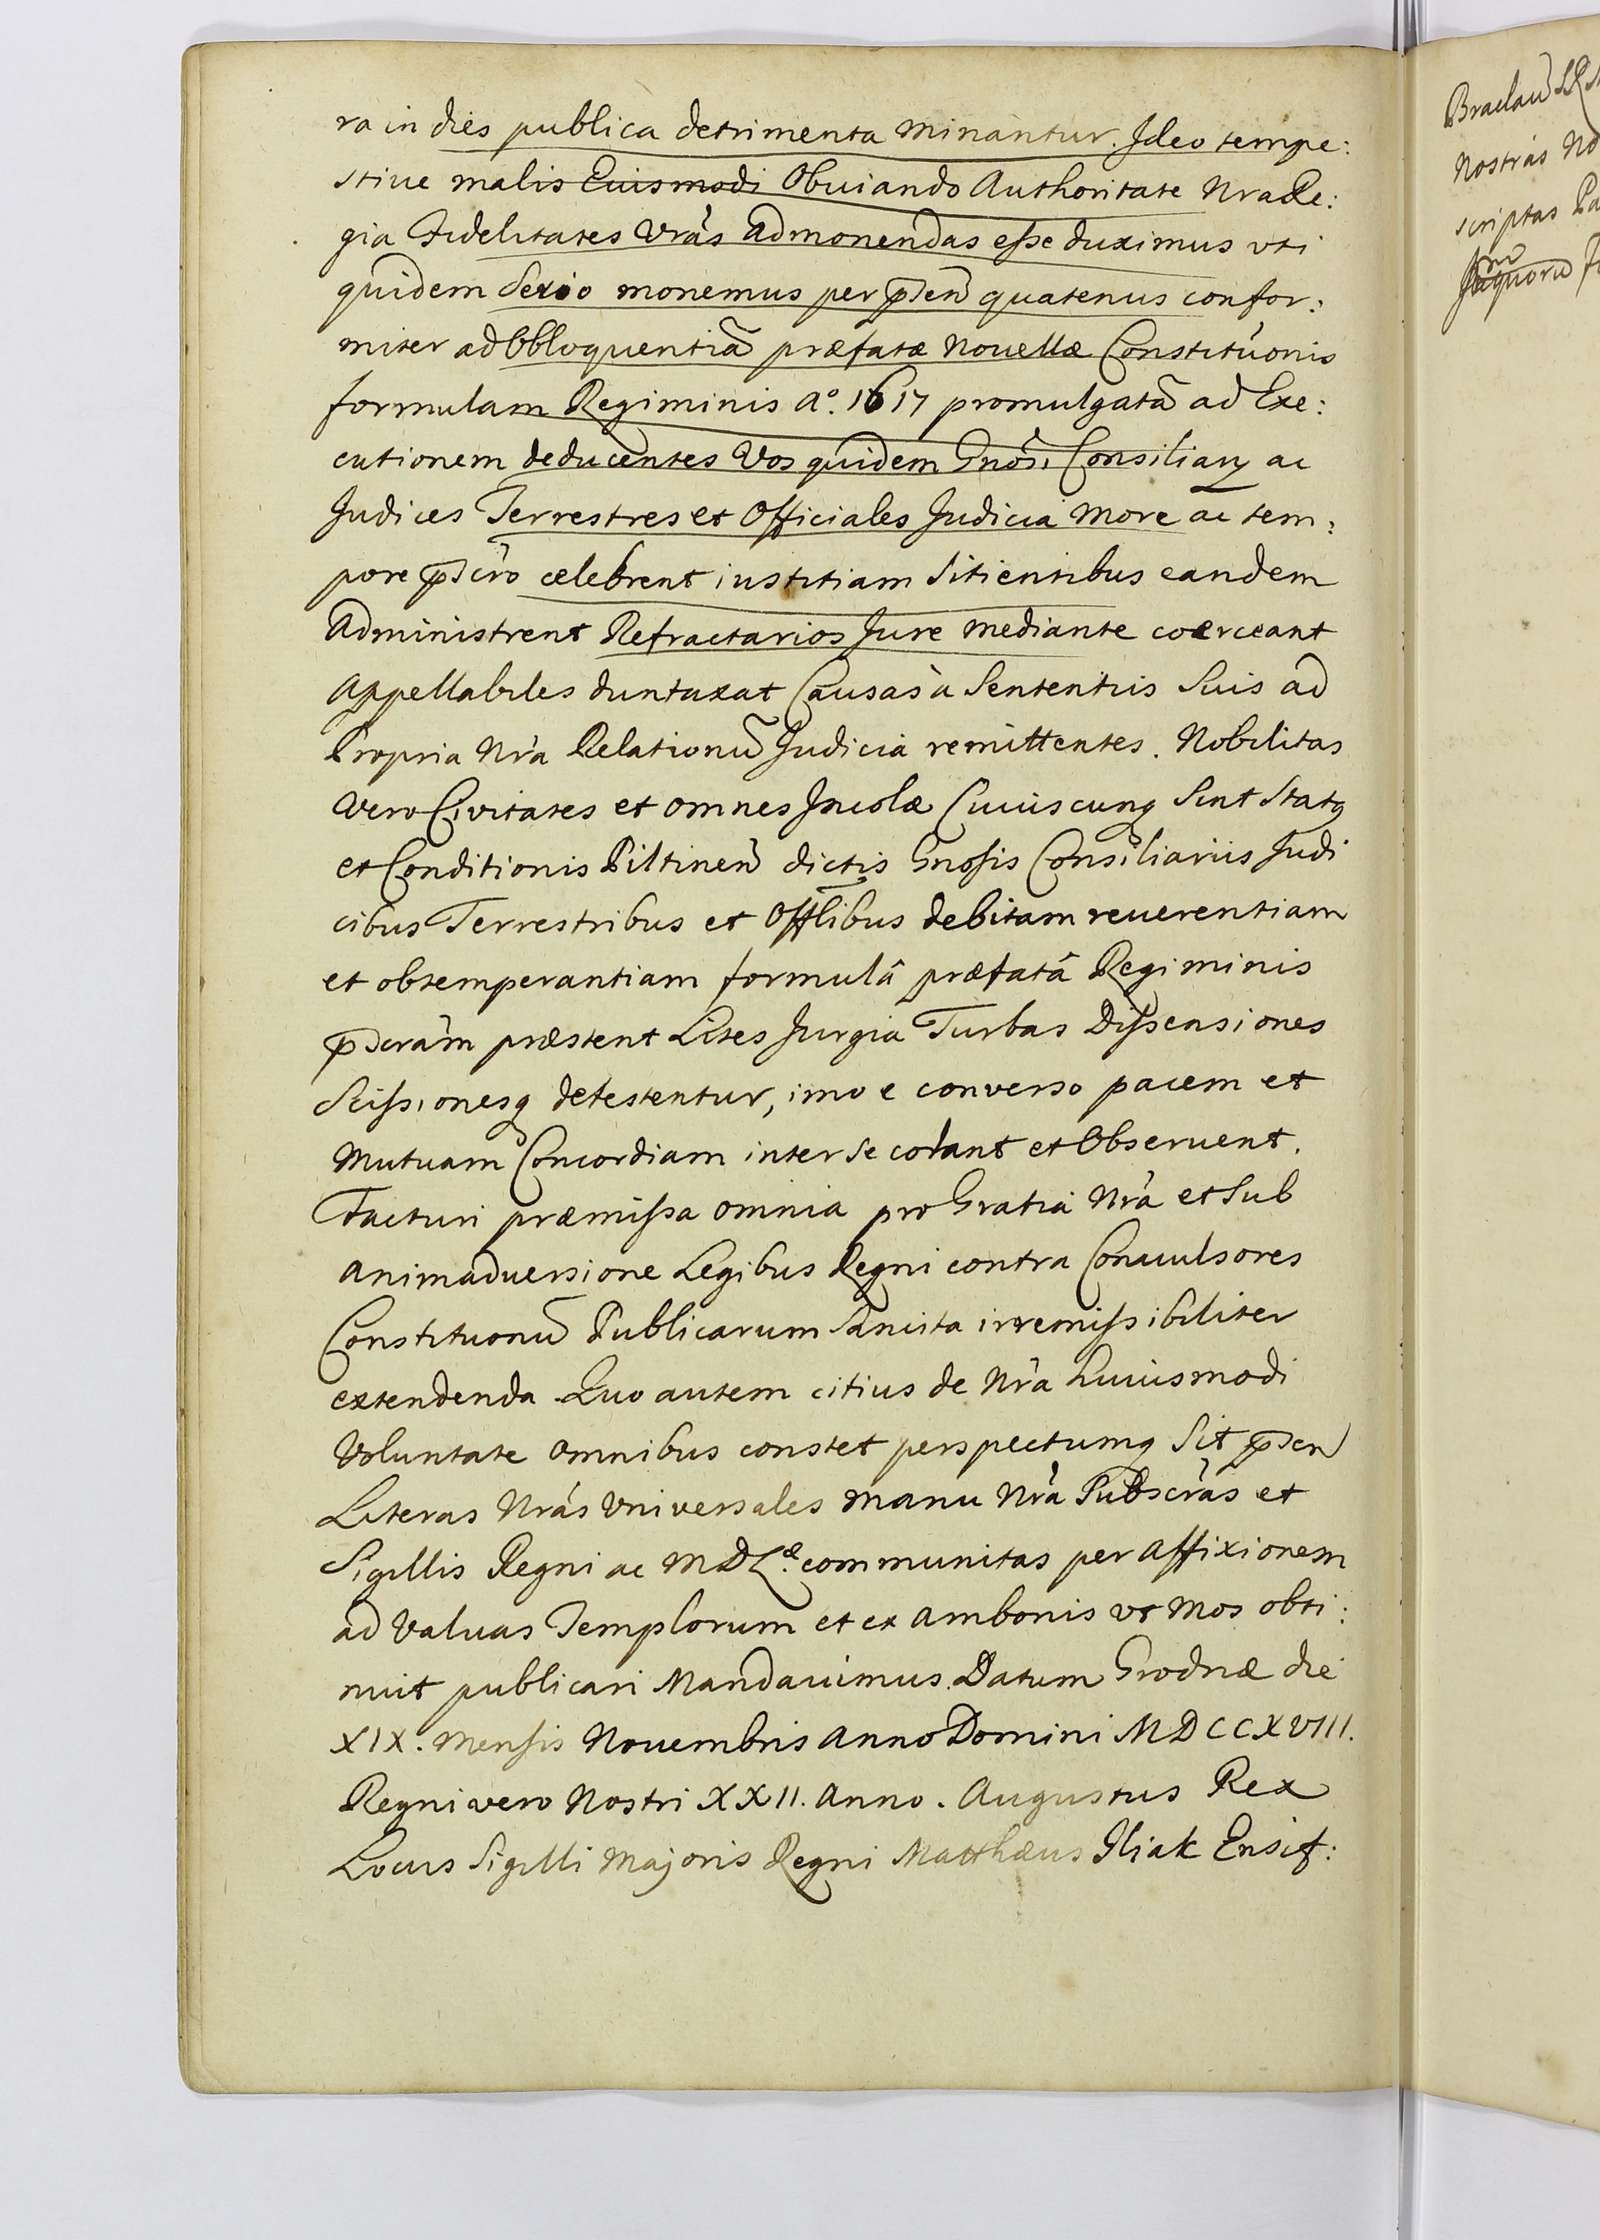 ra in dies publica detrimenta minantur. Ideo tempe:
stiue malis Euismodi Obuiando Authoritate Nra Re:
gia Fidelitates Vras admonendas esse duximus vti
quidem serio monemus per p̄sen̄ quatenus confor:
miter ad Obloquentiā præfatæ Nouellæ Constituonis
formulam Regiminis Aº. 1617 promulgatā ad Exe:
cutionem deducentes Vos quidem Gnosi Consiliarij ac
Judices Terrestres et Officiales Judicia More ac tem:
pore p̄scro celebrent iustitiam Sitientibus eandem
Administrent Refractarios Jure mediante coerceant
Appellabiles duntaxat Causas à Sententiis Suis ad
Propria Nra Relationū Judicia remittentes. Nobilitas
vero Civitates et omnes Incolæ Cuiuscunq Sint Statq
et Conditionis Piltinen̄ dictis Gnosis Consiliariis Judi
cibus Terrestribus et Offlibus debitam reuerentiam
et obtemperantiam formulâ præfatâ Regiminis
p̄scram præstent Lites Jurgia Turbas Dissensiones
Scissionesq detestentur, imo e converso pacem et
Mutuam Concordiam inter se colant et Obseruent.
Facturi præmissa omnia pro Gratia Nrà et Sub
animaduersione Legibus Regni contra Conuulsores
Constituonū Publicarum Sancita irremissibiliter
extendenda Quo autem citius de Nrà huiusmodi
Voluntate omnibus constet perspectumq Sit p̄sen
Literas Nras Vniversales manu Nrà Subscras et
Sigillis Regni ac M D L.æ communitas per affixionem
ad Valuas Templorum et ex ambonis vt Mos obti:
nuit publicari Mandauimus. Datum Grodnæ die
XIX. Mensis Nouembris Anno Domini MDCCXVIII.
Regni vero Nostri XXII. Anno. Augustus Rex
Locus Sigilli Majoris Regni Matthæus Iliak Ensif:
Braclau
Nostras No
scriptas Pa
quorū